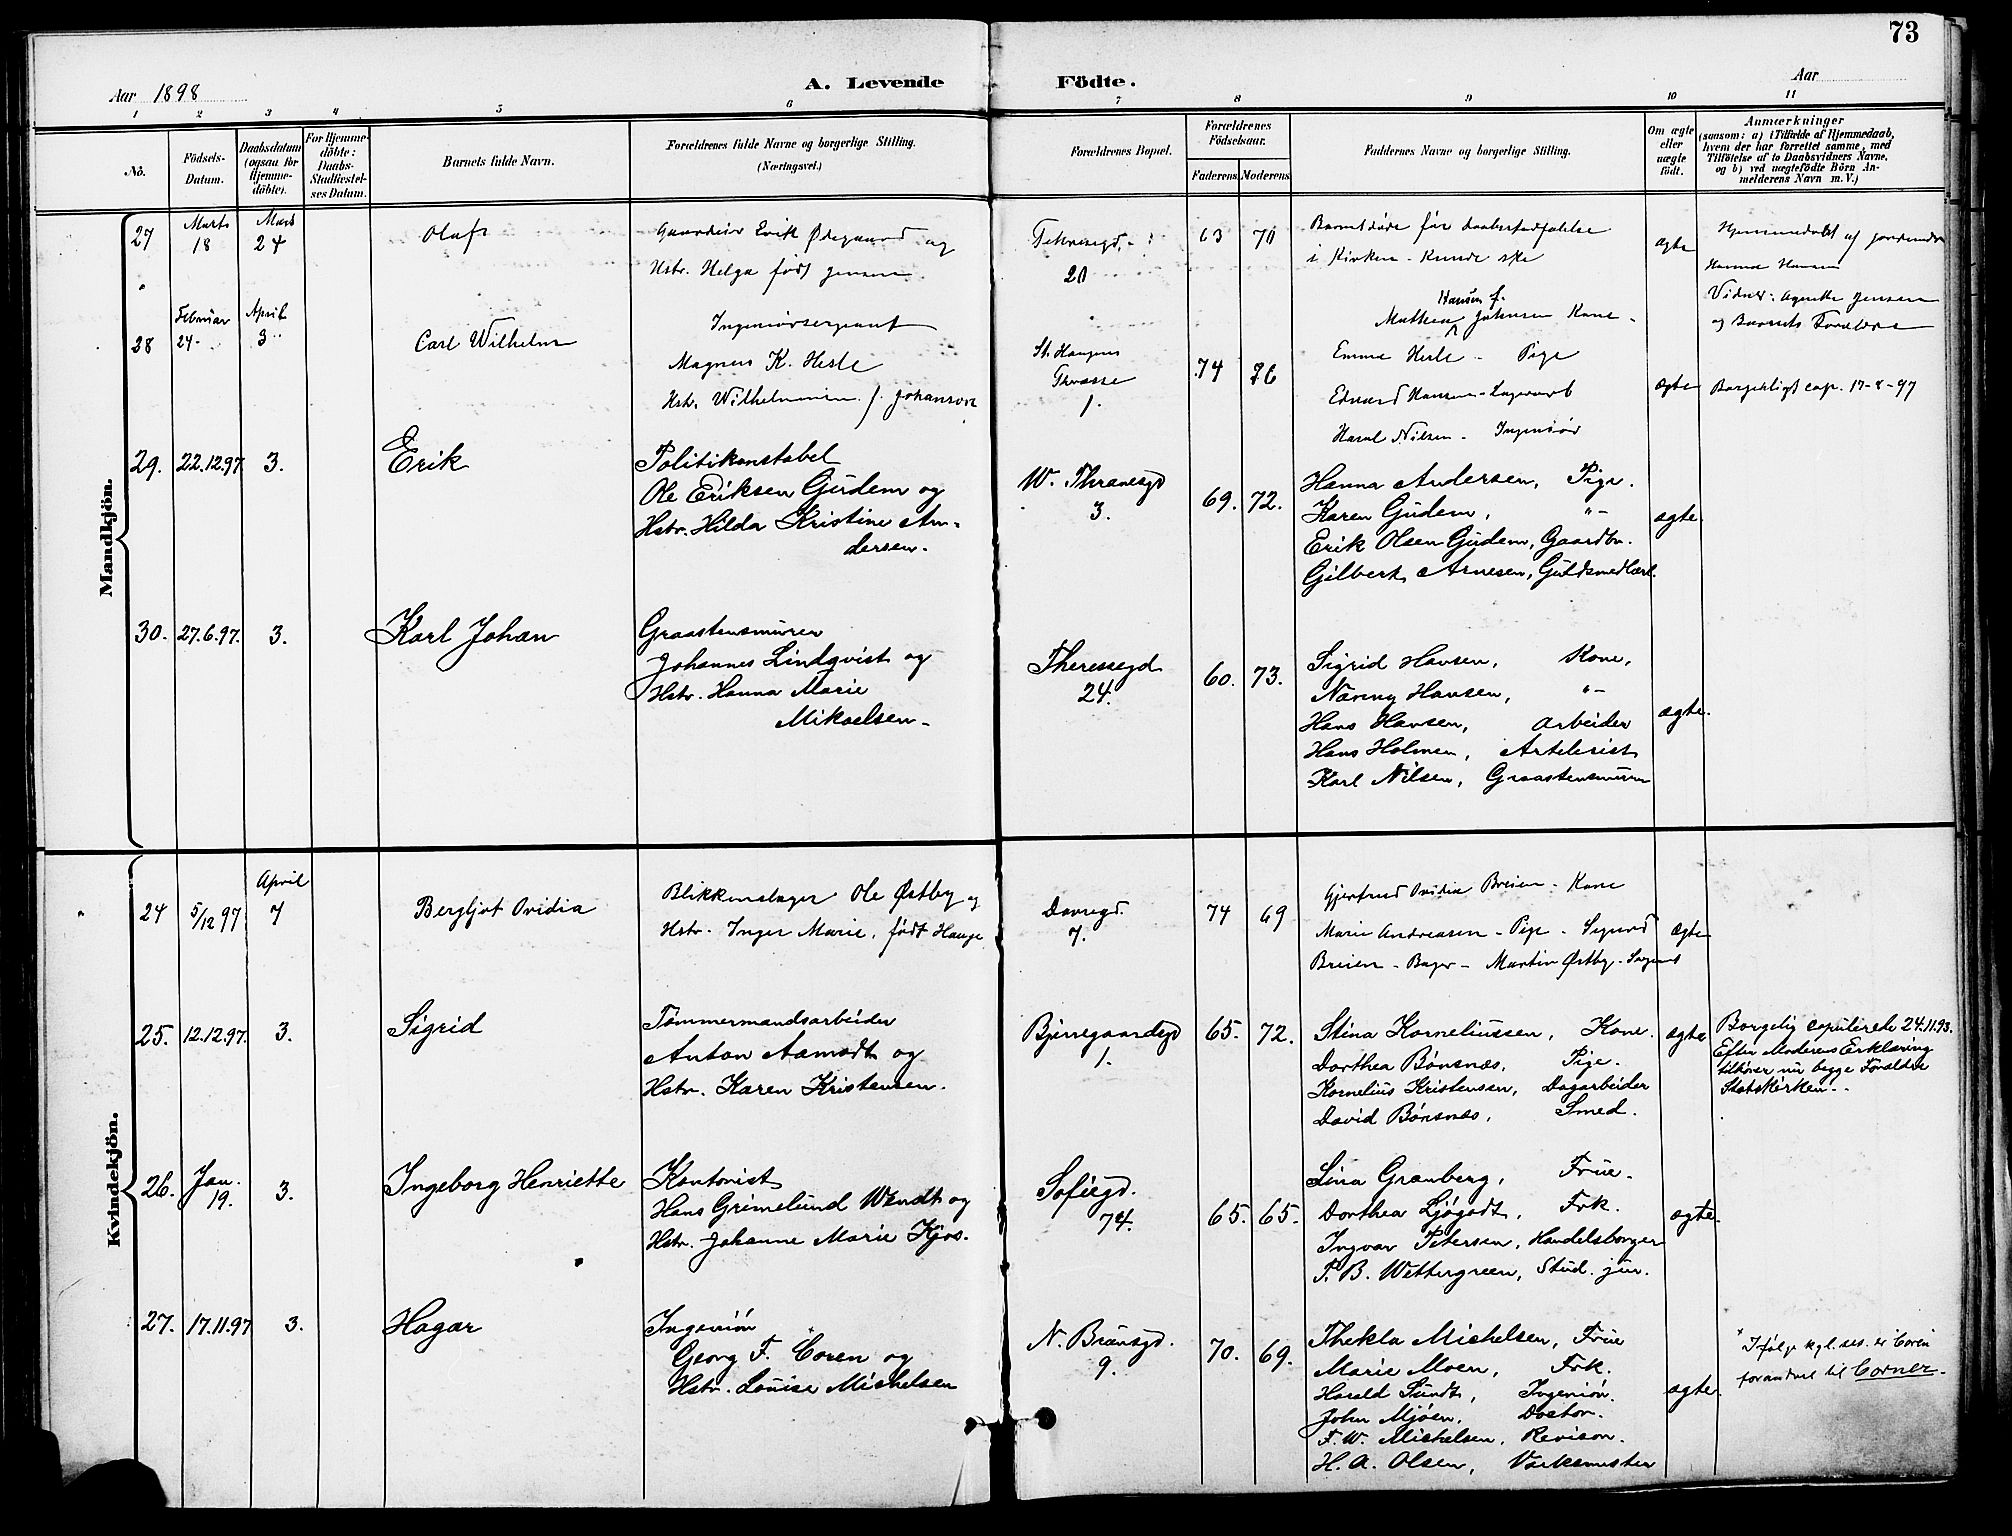 73
Aar 1898
A. Levende Födte.
Aar
1 2 3 4 5 6 7 8 9 10 11
No.
Födsels-
Datum.
Daabsdatum
(ogsaa for
Hjemme-
döbte).
For Hjemme-
döbte:
Daabs-
Stadfæstel-
ses Datum.
Barnets fulde Navn.
Forældrenes fulde Navne og borgerlige Stilling.
(Næringsvei.)
Forældrenes Bopæl.
Forældrenes
Födselsaar.
Faderens. Moderens.
Faddernes Navne og borgerlige Stilling.
Om ægte
eller
uægte
födt.
Anmærkninger
(saasom: a) i Tilfælde af Hjemmedaab,
hvem der har forrettet samme, med
Tilföielse af to Daabsvidners Navne,
og b) ved uægtefödte Börn An-
melderens Navn m. V.)
Mandkjön.
27
Marts
18
Marts
24
Olaf
Gaardeier Erik Ødegaard og
Hstr. Helga født Jensen
20
63 70
Barnet døde før Daabsstadfæstelse
i Kirken kunde ske
ægte
Hjemmedøbt af Jordemoder
Hanna Hansen
Vidner: Agnethe Jensen
og Barnets Forældre
28
Februar
24
April
3
Carl Wilhelm
Ingeniørsergeant
Magnus K. Hesle
Hstr. Wilhelmine f. Johanson
St. Haugens
Terasse
1.
74 76
Hansen f.
Mathea Johnsen Kone
Emma Hesle - Pige
Edvard Hansen -
Nilsen - Ingeniør
ægte
Borgerligt cop. 17-8-97
29. 22.12.97. 3.
Erik
Politikonstabel
Ole Eriksen Gudem og
Hstr. Hilda Kristine An-
dersen.
W. Thranesgd
3.
69. 72.
Hanna Andersen, Pige.
Karen Gudem, "-
Erik Olsen Gudem, Gaardbr.
Gilbert Arnesen, Guldsmedlærl.
ægte.
30. 27.6.97. 3.
Karl Johan
Graastensmurer
Johannes Lindqvist og
Hstr. Hanna Marie
Mikaelsen -
Theresesgd
24.
60. 73.
Sigrid Hansen, Kone,
Nanny Hansen, "-
Hans Hansen, Arbeider
Hans Holmen, Artelerist
Karl Nilsen, Graastensmurer
ægte.
Kvindekjön.
24 5/12 97
April
7
Bergljot Ovidia
Blikkenslager Ole Østby og
Hstr. Inger Marie, født Hauge
Dovregd.
7.
74 69
Gjertrud Ovidia Breien - Kone
Marie Andreasen - Pige - Sigurd
Breien - Bager - Martin Østby -
ægte
25. 12.12.97. 3.
Sigrid
Tømmermandsarbeider
Anton Aamodt og
Hstr. Karen Kristensen.
Bjerregaardsgd
1.
65. 72.
Stina Korneliussen, Kone.
Dorthea Bønsnes, Pige.
Kornelius Kristensen, Dagarbeider
David Bønsnes, Smed.
ægte
Borgelig copuleret 24.11.93.
Efter Moderens Erklæring
tilhører nu begge Forældre
Statskirken.
26.
Jan.
19.
3.
Ingeborg Henriette
Kontorist
Hans Grimelund Wendt og
Hstr. Johanne Marie Kjos.
Sofiegd.
74.
65. 65.
Lina Granberg, Frue.
Dorthea Ljøgodt, Frk.
Ingvar Petersen, Handelsborger
P. B. Wettergreen, Stud. jur.
ægte.
27. 17.11.97 3.
Hagar
Ingeniør
Georg F. Coren og
Hstr. Louise Michelsen
N. Brunsgd.
9.
70. 69.
Thekla Michelsen, Frue
Marie Moen, Frk.
Harald Sundt, Ingeniør.
John Mjøen, Doctor.
F. W. Michelsen, Revisor.
H. A. Olsen, Værksmester
ægte.
Ifølge kgl. res. er Coren
forandret til Corner.